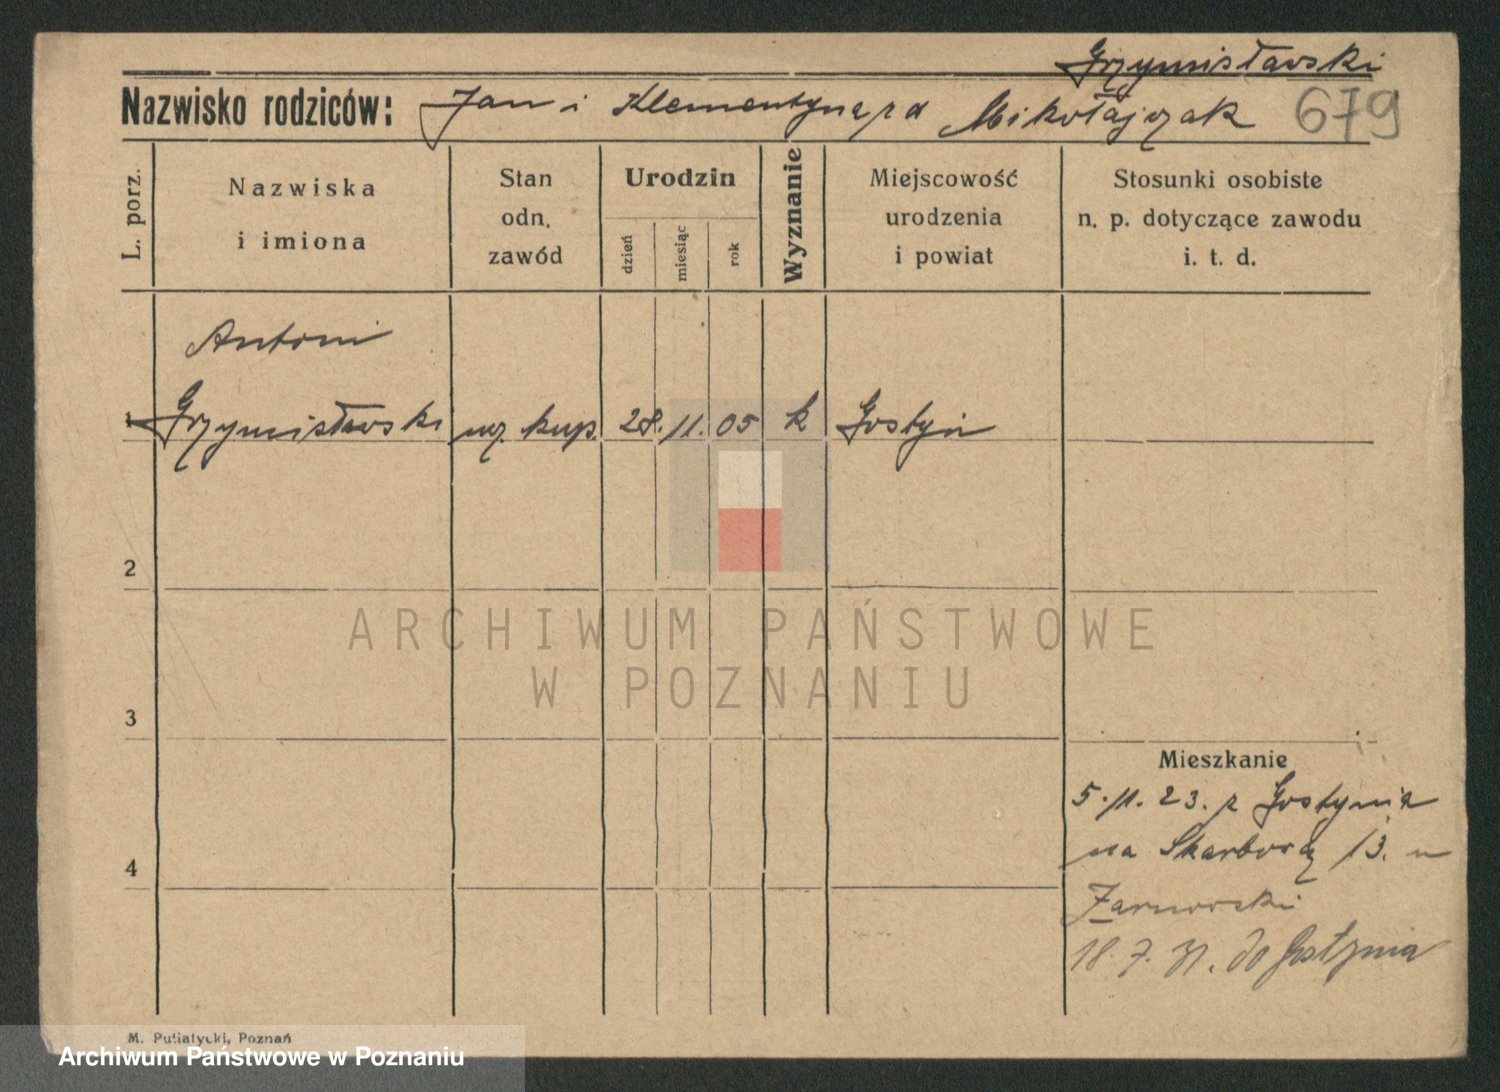 Grzymisławski
Nazwisko rodziców: Jan i Klementyna z d Mikołajczak 679
L. porz.
Nazwiska
i imiona
Stan
odn.
zawód
Urodzin
dzień
miesiąc
rok
Wyznanie
Miejscowość
urodzenia
i powiat
Stosunki osobiste
n. p. dotyczące zawodu
i. t. d.
Antoni
1 Grzymisławski ucz. kup. 28. 11. 05 k Gostyń
2
3
4
Mieszkanie
5. 11. 23. z Gostynia
na Skarbową 13. u
Żarnowski
18. 7. 31. do Gostynia
M. Putiatycki, Poznań
ARCHIWUM PAŃSTWOWE
W POZNANIU
Archiwum Państwowe w Poznaniu